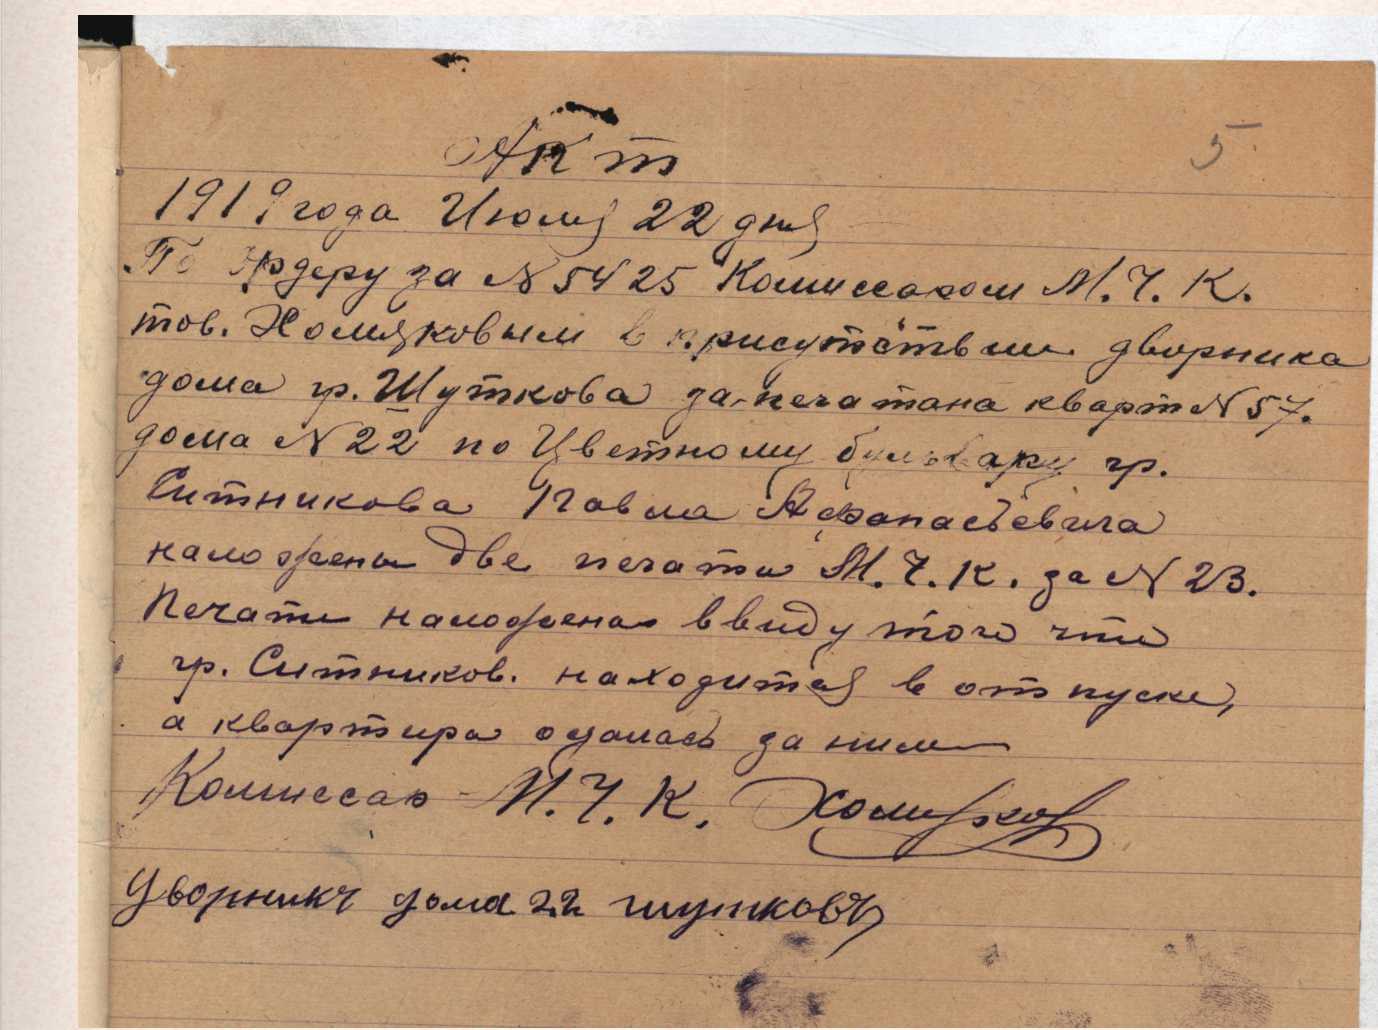 5
Акт
1919 года Июля 22 дня
По Ордеру за № 5425 Комиссаром М. Ч. К.
тов. Хомяковым в присутствии дворника
дома гр. Шуткова запечатана кварт № 57.
дома № 22 по Цветному бульвару гр.
Ситникова Павла Афанасьевича
наложены две печати М. Ч. К. за № 23.
Печати наложены ввиду того что
гр. Ситников. находится в отпуске,
а квартира осталась за ним
Комиссар М. Ч. К. Хомяков
Дворникъ дома 22 шутковъ